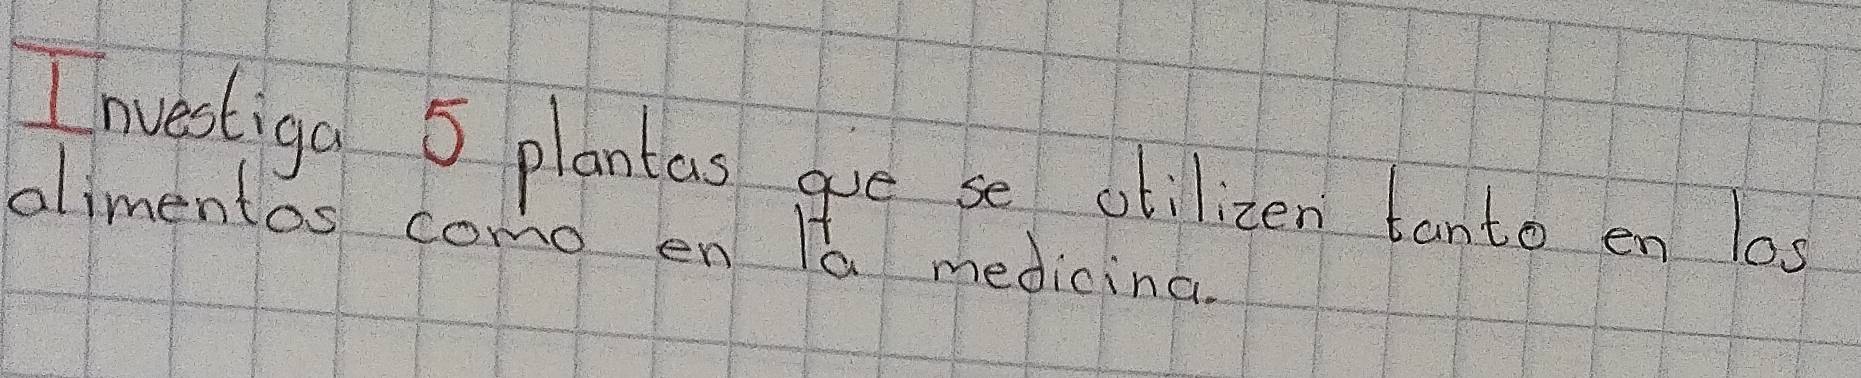 Investiga 5 plantas que se utilizen tanto en los
alimentos como en la medicina.